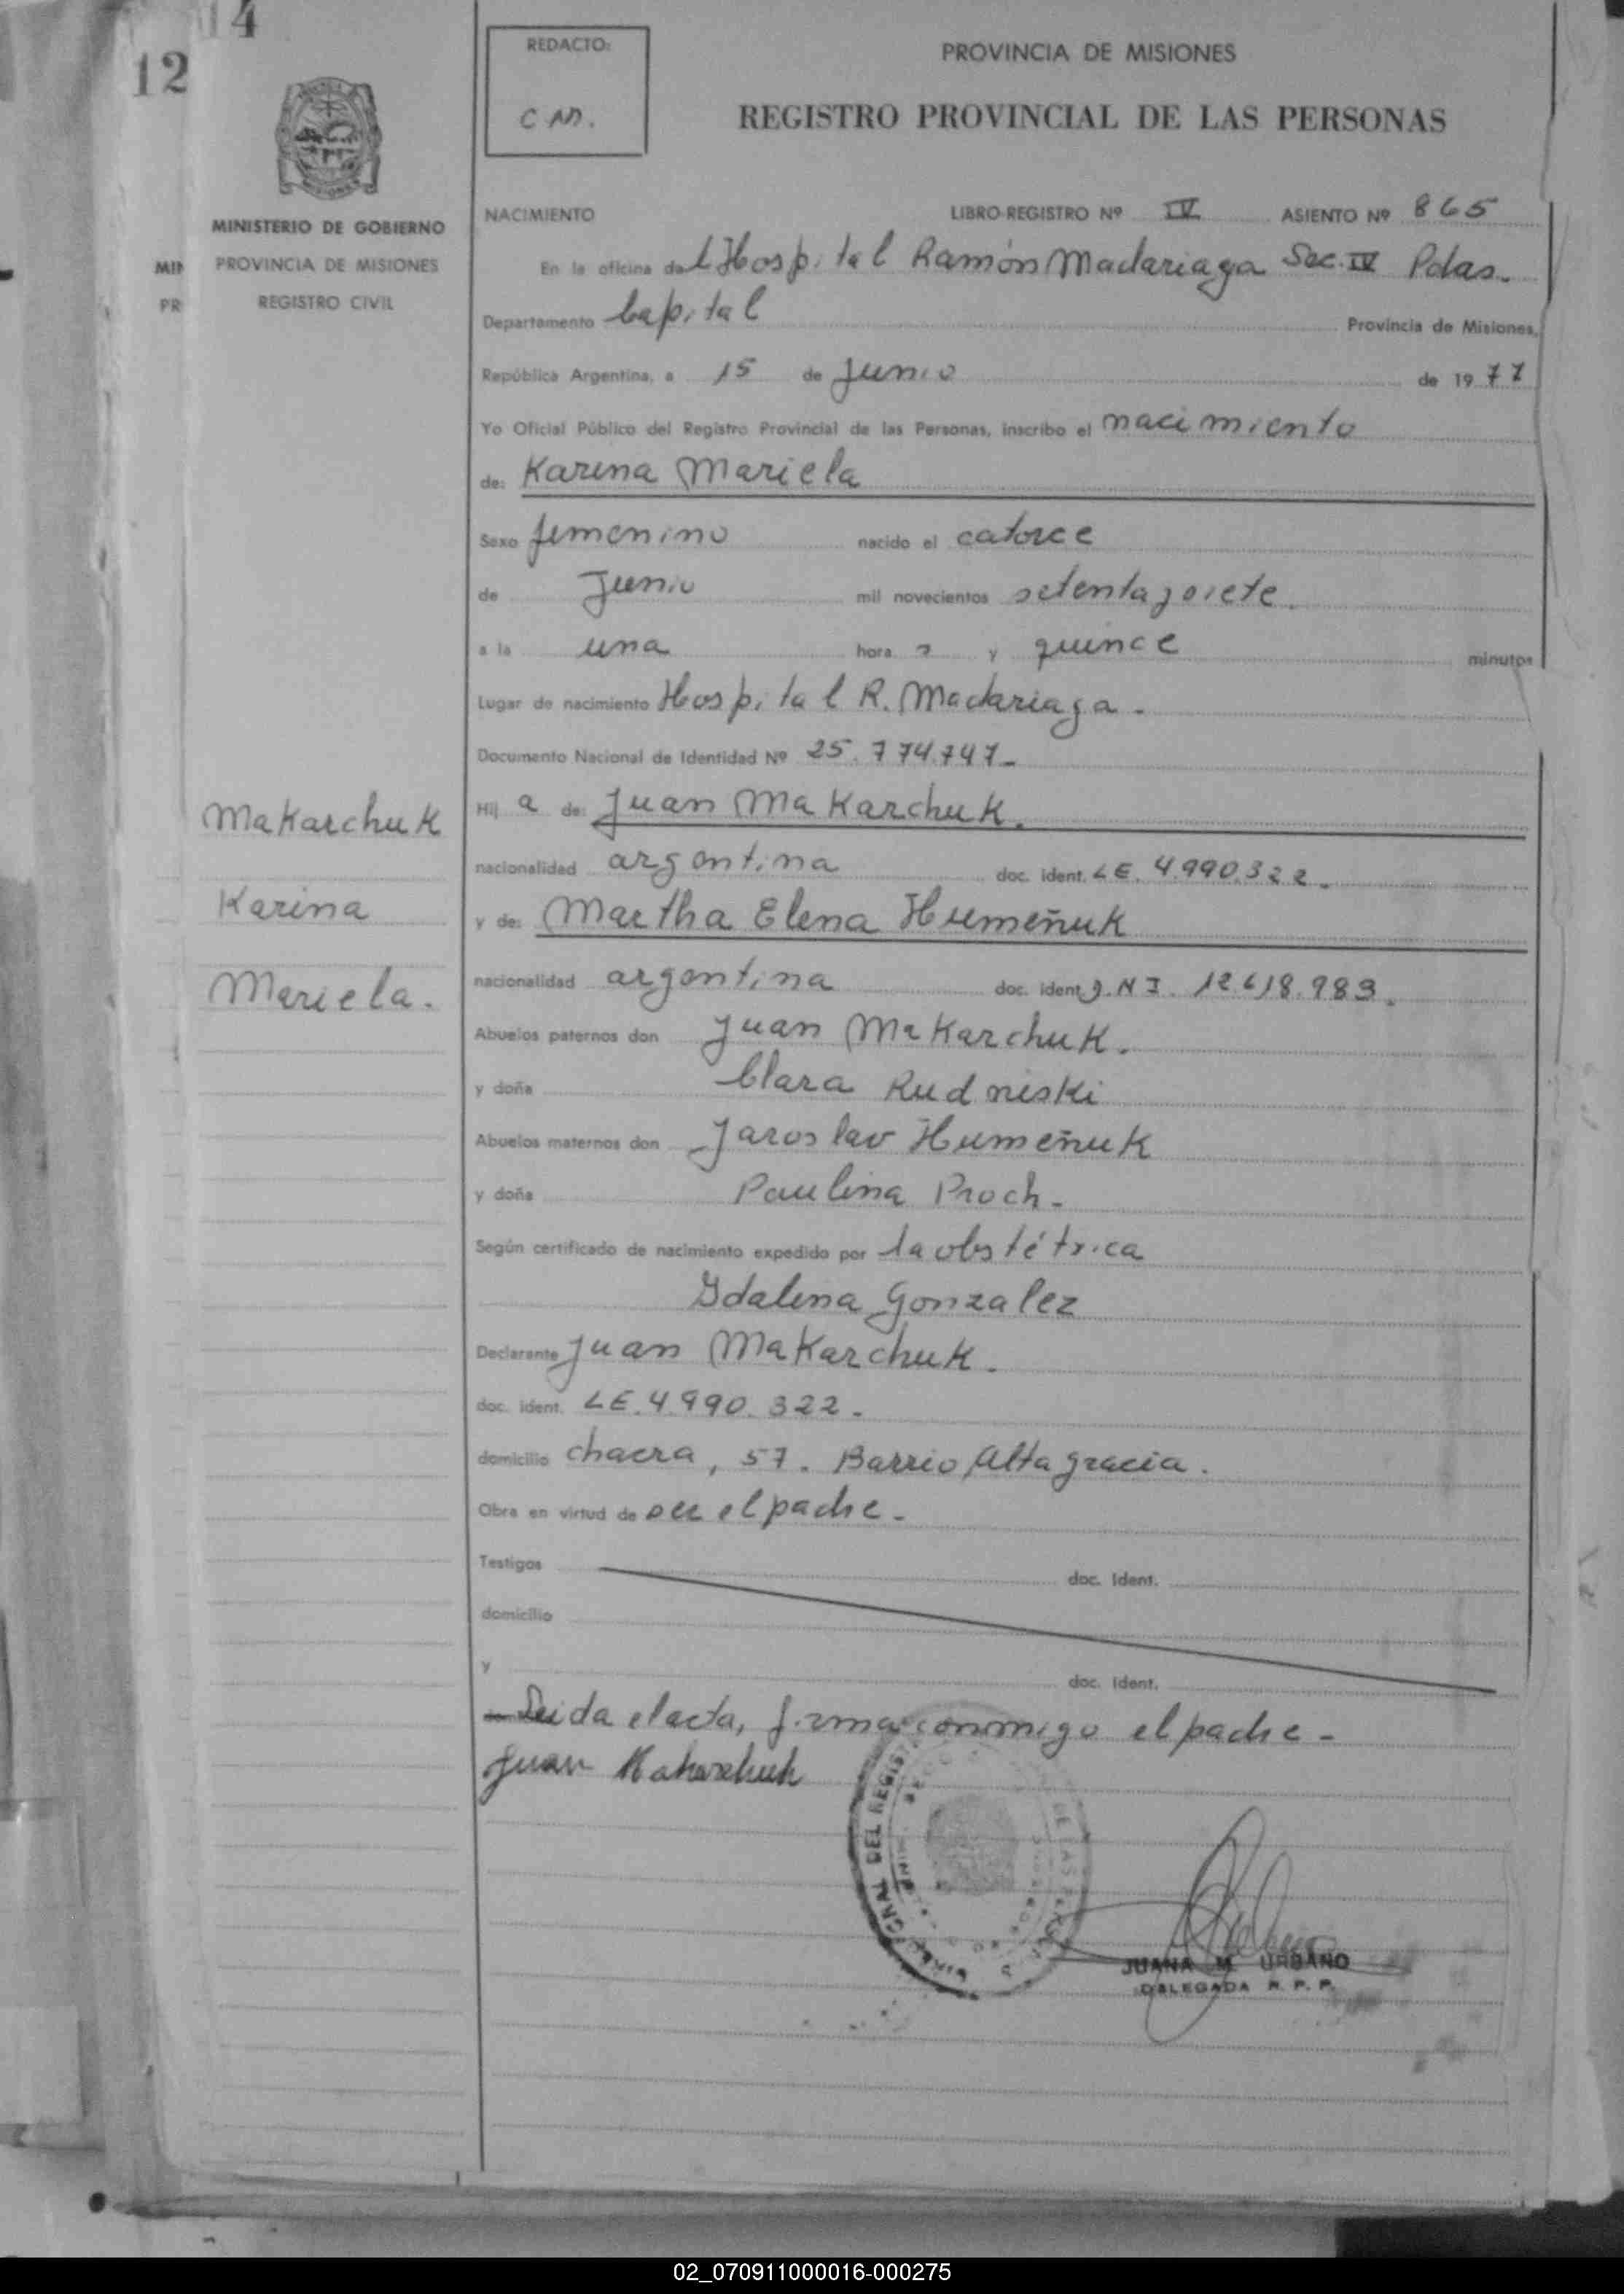 14
12
REDACTO:
C M.
PROVINCIA DE MISIONES
REGISTRO PROVINCIAL DE LAS PERSONAS
MINISTERIO DE GOBIERNO
PROVINCIA DE MISIONES
REGISTRO CIVIL
MIN
PR
NACIMIENTO LIBRO-REGISTRO Nº IV ASIENTO Nº 865
En la oficina del Hospital Ramón Madariaga Sec. IV Pdas.
Departamento Capital Provincia de Misiones,
República Argentina, a 15 de Junio de 1977
Yo Oficial Público del Registro Provincial de las Personas, inscribo el nacimiento
de: Karina Mariela
Sexo femenino nacido el catorce
de Junio mil novecientos setenta y siete.
a la una hora y quince minutos
Lugar de nacimiento Hospital R. Madariaga.
Documento Nacional de Identidad Nº 25.774.747-
Makarchuk
Karina
Mariela.
Hij a de: Juan Makarchuk.
nacionalidad argentina doc. ident. LE. 4.990.322.
y de: Martha Elena Humeñuk
nacionalidad argentina doc. ident D.N I. 12.618.983.
Abuelos paternos don Juan Makarchuk.
y doña Clara Rudniski
Abuelos maternos don Jaroslav Humeñuk
y doña Paulina Proch-
Según certificado de nacimiento expedido por la obstétrica
Idalina Gonzalez
Declarante Juan Makarchuk.
doc. ident. LE. 4.990.322-
domicilio chacra, 57. Barrio Alta gracia.
Obra en virtud de ser el padre-
Testigos doc. Ident.
domicilio
y doc. Ident.
Leida el acta, firma conmigo el padre-
Juan Makarchuk
DEL REGIST
DE LAS
JUANA M. URBANO
DELEGADA R. P. P.
02_070911000016-000275